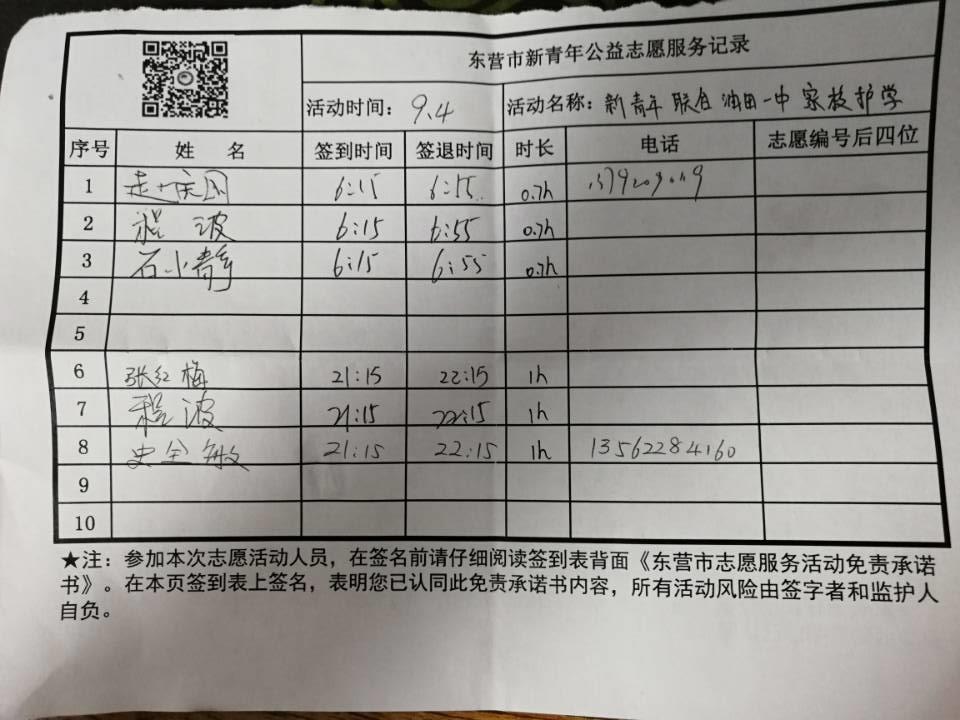 东营市新青年公益志愿服务记录
活动时间：9.4 活动名称：新青年 联合 油田一中 家校护学
序号 姓 名 签到时间 签退时间 时长 电话 志愿编号后四位
1 6:15 6:55 0.7h
2 程 波 6:15 6:55 0.7h
3 石小静 6:15 6:55 0.7h
4
5
6 张红梅 21:15 22:15 1h
7 程波 21:15 22:15 1h
8 史全敏 21:15 22:15 1h 13562284160
9
10
★注：参加本次志愿活动人员，在签名前请仔细阅读签到表背面《东营市志愿服务活动免责承诺
书》。在本页签到表上签名，表明您已认同此免责承诺书内容，所有活动风险由签字者和监护人
自负。